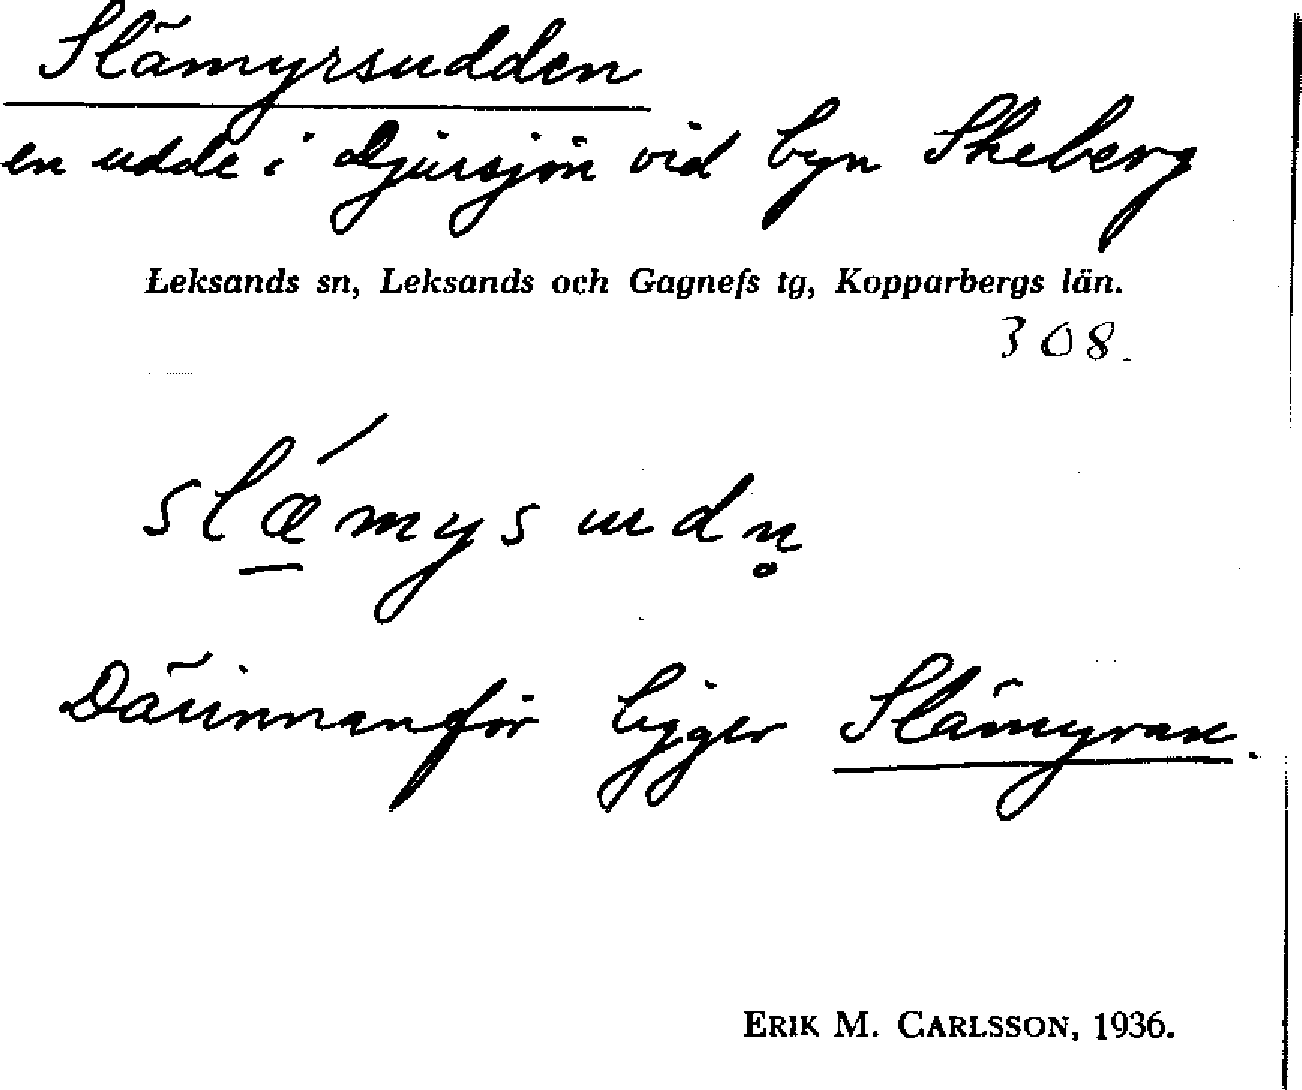 Slämyrsudden
en udde i Djursjön vid byn Skeberg
Leksands sn, Leksands och Gagnefs tg, Kopparbergs län.
308.
slǽ̱mysudn̥
Därinnanför ligger Slämyran.
ERIK M. CARLSSON, 1936.